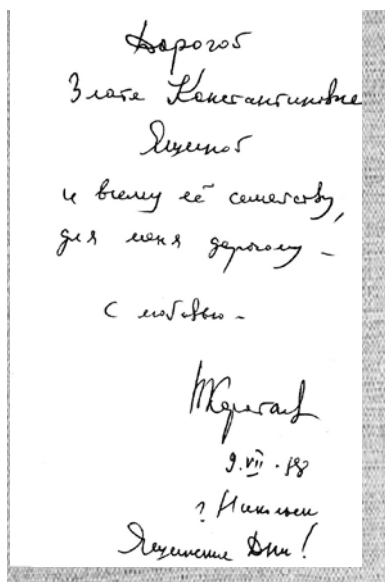 Дорогой
Злате Константиновне
Яшиной
и всему её семейству,
для меня дорогому –
С любовью –
9.VII.
г. Никольск
Яшинские Дни!